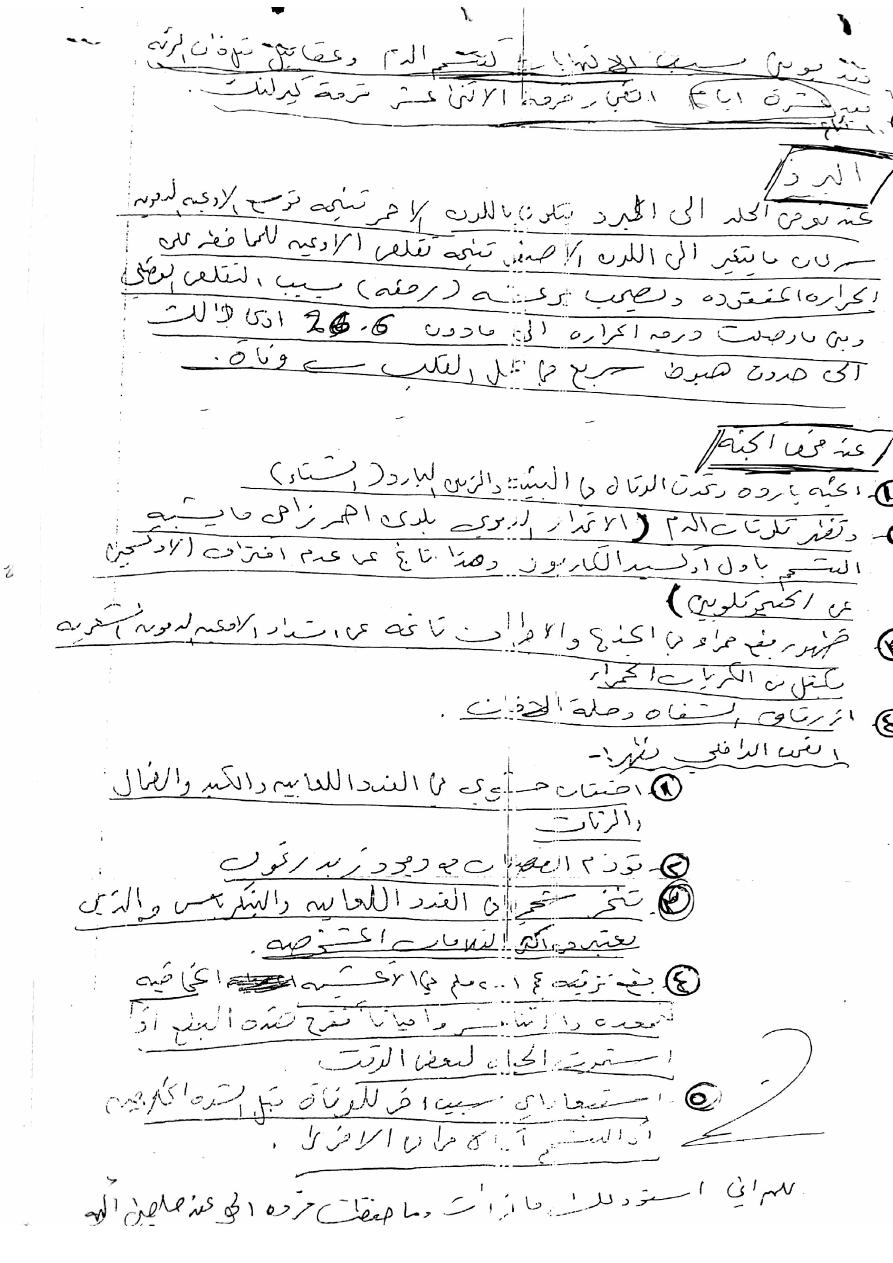 بعد يومين بسبب الالتهابات كتسمم الدم وعقابيل مثل ذات الرئه
بعد عشرة ايام انفجار قرحة الاثنا عشر قرحة كيرلنك .
البرد
عند تعرض الجلد الى البرد يتلون باللون الاحمر نتيجه توسع الاوعيه الدمويه
سرعان ما يتغير الى اللون الاصفر نتيجه تقلص الاوعيه للمحافظه على
الحراره المفقوده ويصحب برعشه (رجفه) بسبب التقلص العضلي
ومتى ما وصلت درجه الحراره الى مادون 26.6 ادى ذالك
الى حدوث هبوط سريع في عمل القلب وفاة .
عند فحص الجثه
١- الجثه بارده وتحدث الوفاة في البيئة والزمن البارد (الشتاء)
وتظهر تلونات الدم (الانحدار الدموي بلون احمر زاهي ما يشبه
التسمم باول اوكسيد الكاربون وهذا ناتج عن عدم افتراق الاوكسجين
عن الهيموكلوبين)
٣ ظهور بقع حمراء في الجذع والاطراف ناتجه عن انسداد الاوعيه الدمويه الشعريه
بكتل من الكريات الحمراء
٤ ازرقاق الشفاه وحلمة الاذن .
الفحص الداخلي تظهر :-
١- احتقان حشوي في الغدد اللعابيه والكبد والطحال
والرئات
٢- تورم الرئات مع وجود زبد رغوي
٣- تنخر شحمي في الغدد اللعابيه والبنكرياس والذي
يعتبر من اكثر العلامات المشخصه .
٤ بقع نزفيه ١-٢ ملم في الاغشيه المخاطيه
للمعده والاثنا عشر واحيانا تتقرح هذه البقع اذا
استمرت الحياة لبعض الوقت
٥- استبعاد اي سبب اخر للوفاة مثل الشده الخارجيه
او التسمم او الامراض الاخرى .
2
اللهم اني استودعك ما قرأت وما حفظت فرده الي عند حاجتي اليه